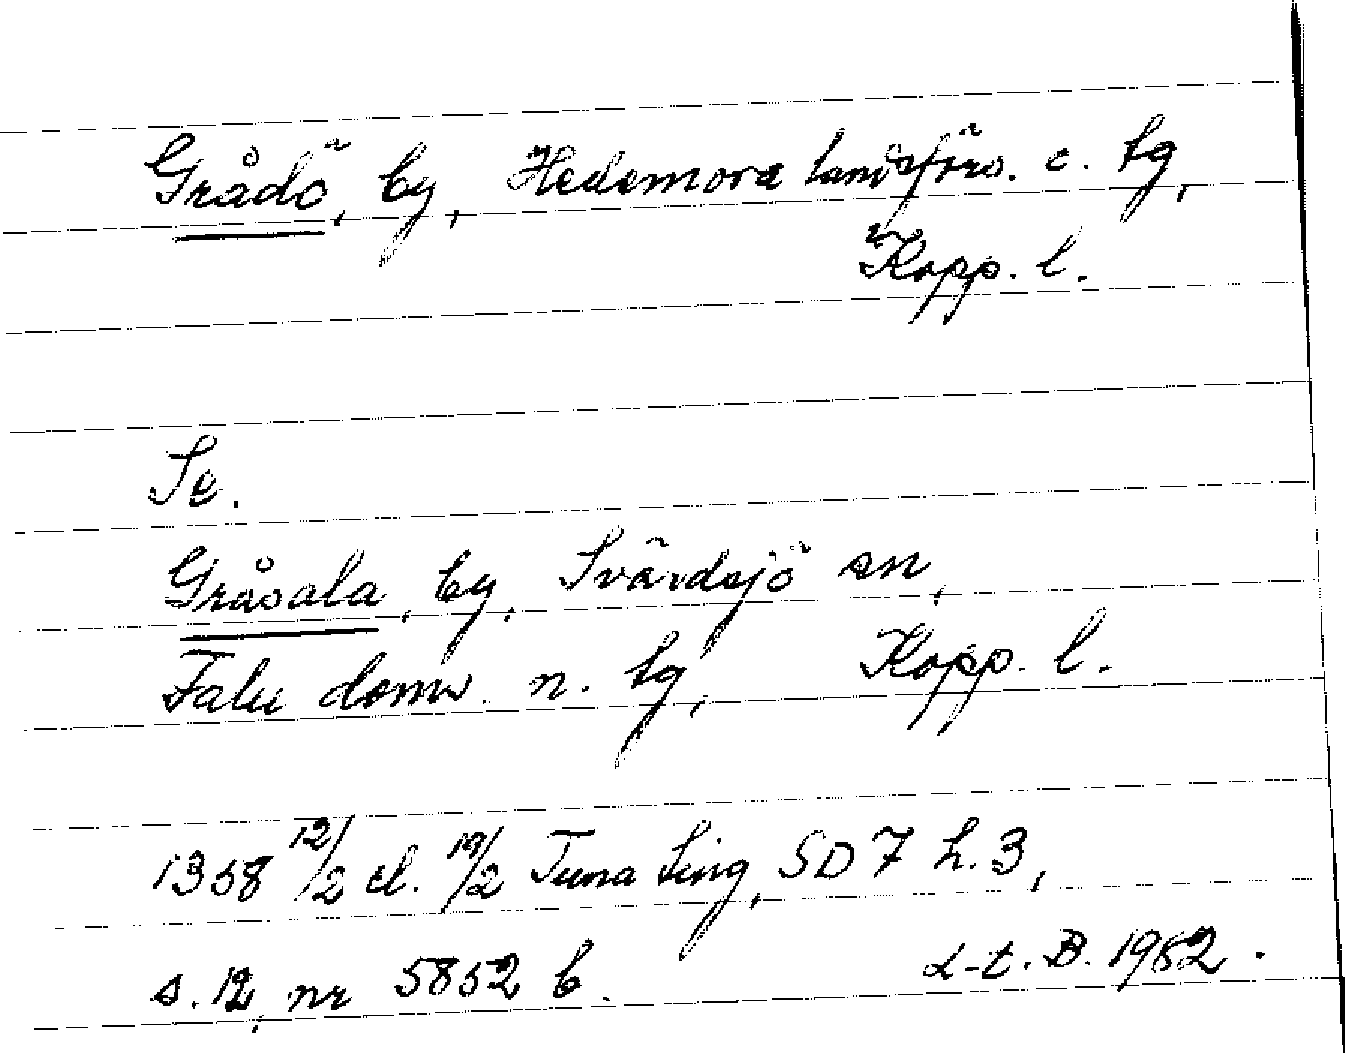 Grådö, by, Hedemora landsförs. o. tg,
Kopp. l.
Se.
Gråsala, by, Svärdsjö sn,
Falu domv. n. tg, Kopp. l.
1358 12/2 el. 19/2 Tuna ting, SD 7 h. 3,
s. 12, nr 5852 b. L-t. B. 1962.